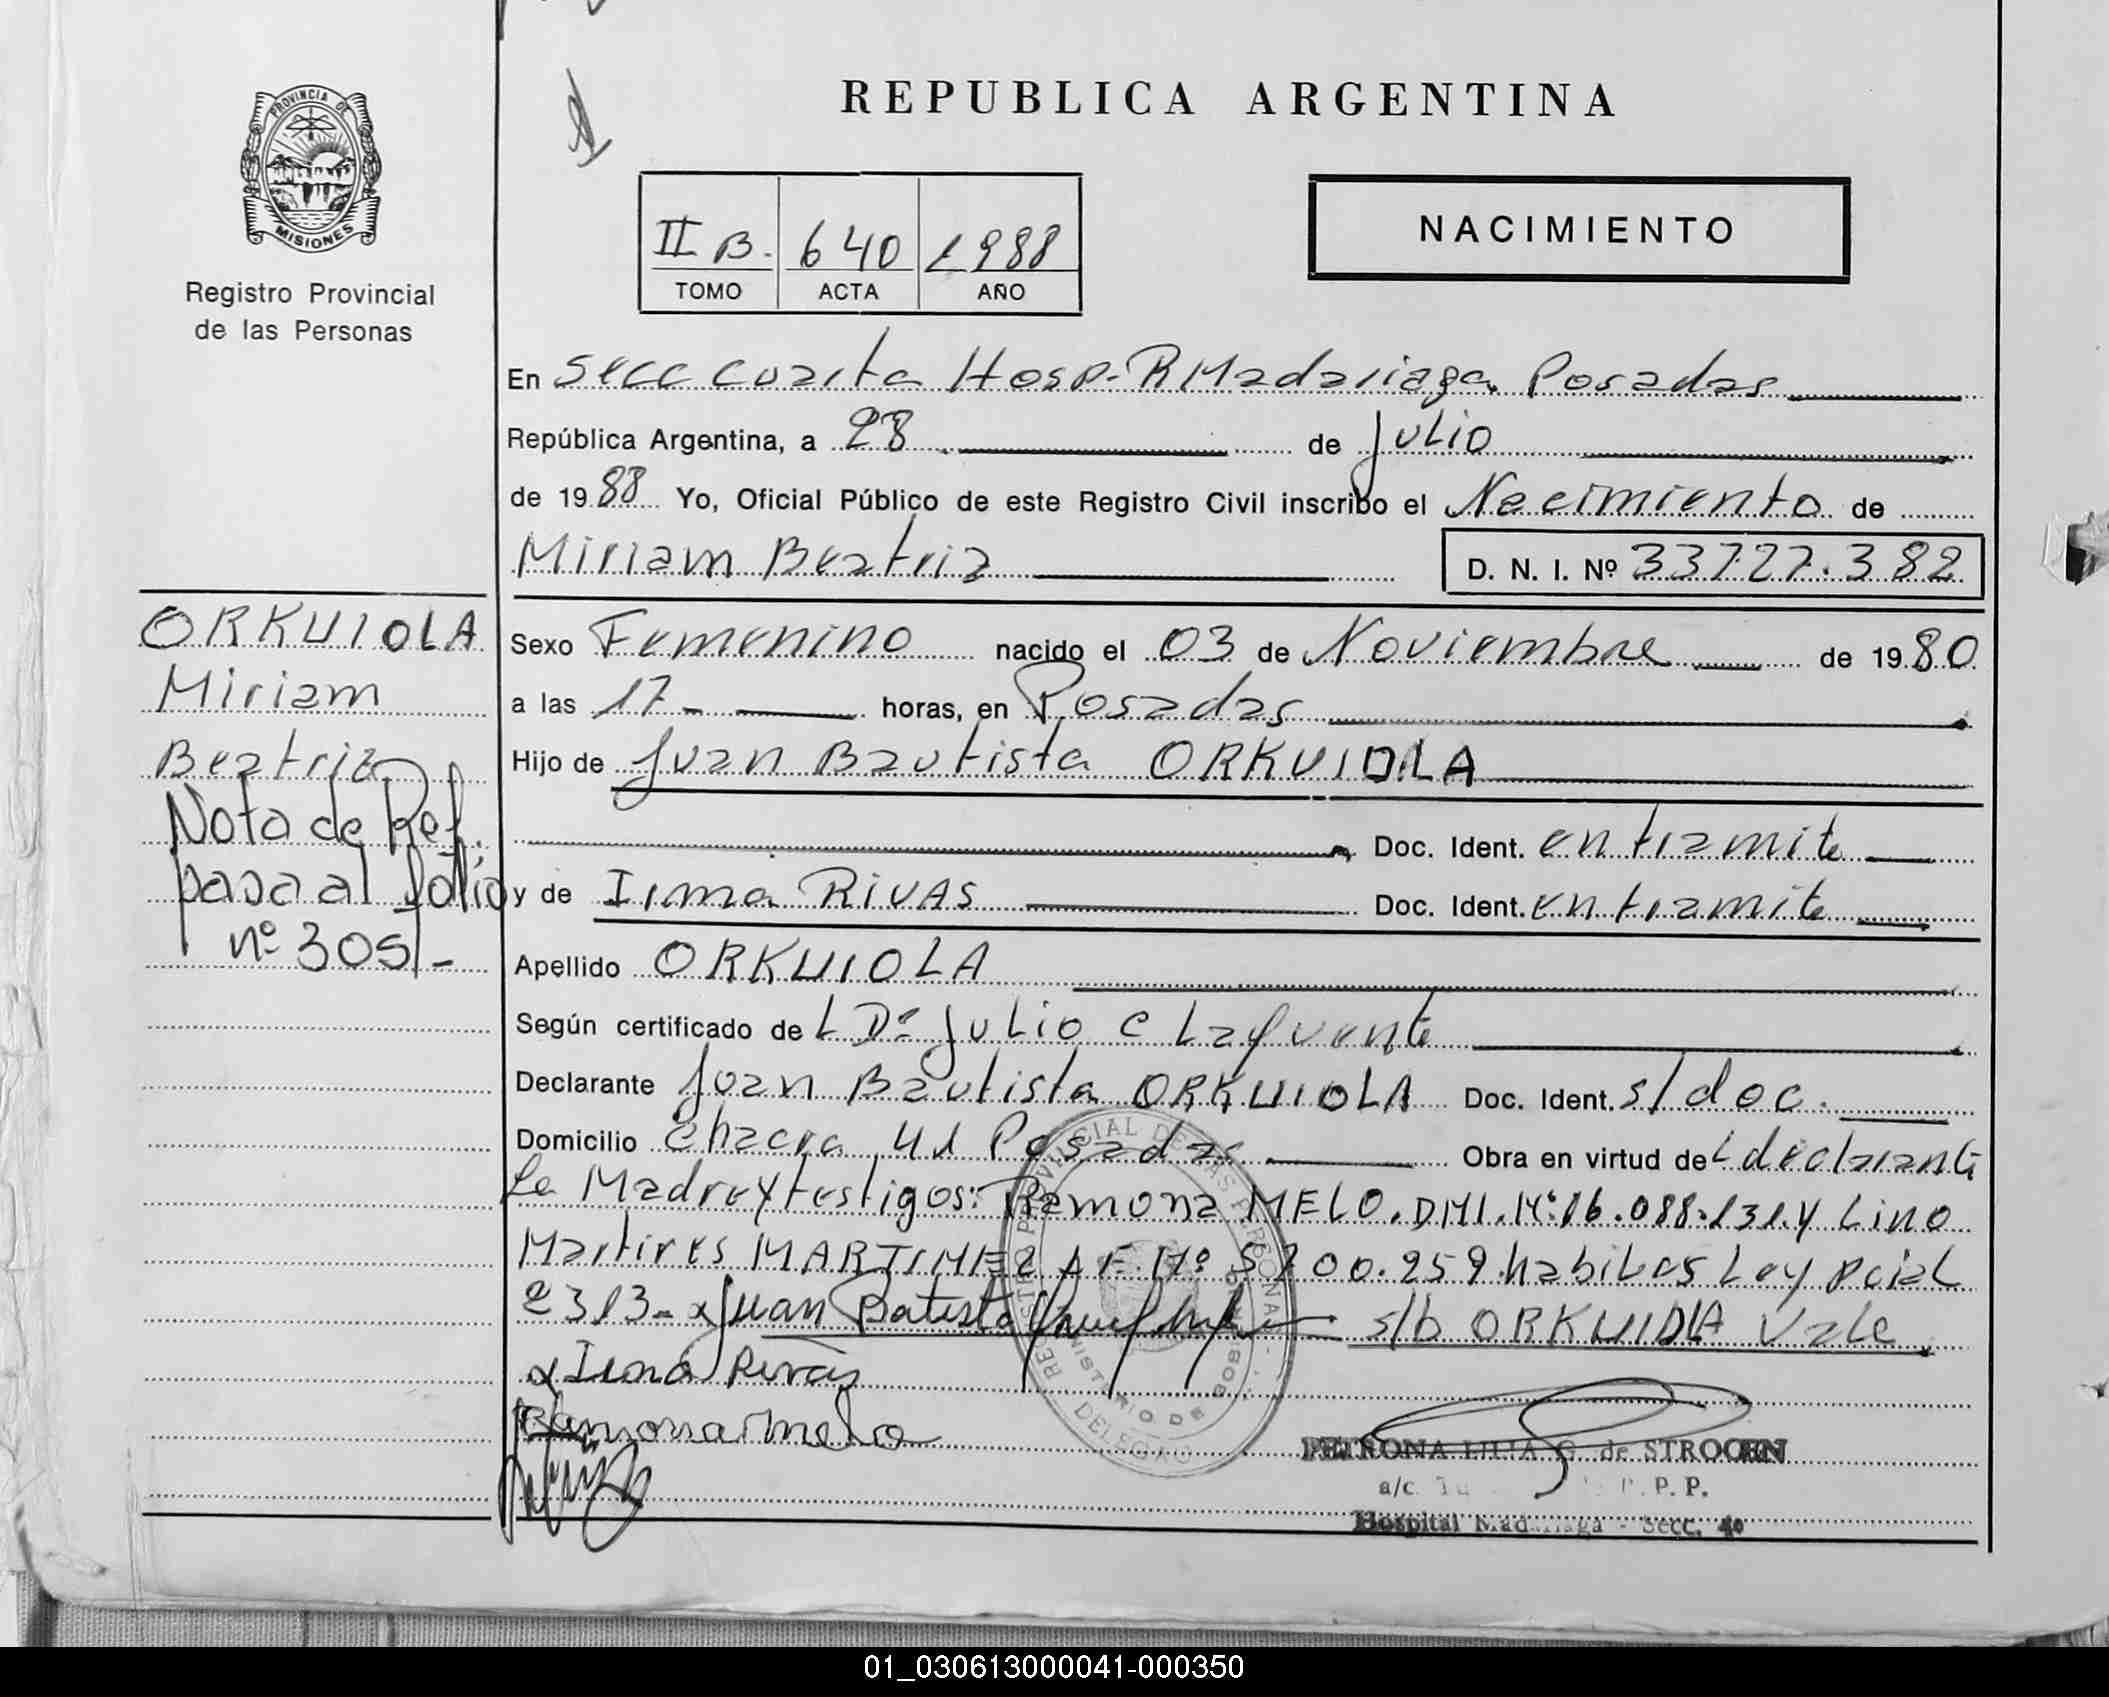 REPUBLICA ARGENTINA
PROVINCIA DE
MISIONES
Registro Provincial
de las Personas
II B. 640 1988
TOMO ACTA AÑO
NACIMIENTO
En Secc Cuarta Hosp. R Madariaga Posadas
República Argentina, a 28 de Julio
de 1988 Yo, Oficial Público de este Registro Civil inscribo el Nacimiento de
Miriam Beatriz D. N. I. Nº 33727.382
ORKUIOLA
Miriam
Beatriz
Nota de Ref.
pasa al folio
nº 305/-
Sexo Femenino nacido el 03 de Noviembre de 1980
a las 17- horas, en Posadas
Hijo de Juan Bautista ORKUIOLA
Doc. Ident. en tramite
y de Irma RIVAS Doc. Ident. en tramite
Apellido ORKUIOLA
Según certificado de L Dr Julio C Lafuente
Declarante Juan Bautista ORKUIOLA Doc. Ident. s/doc.
Domicilio Chacra 41 Posadas Obra en virtud de L declarante
La Madre y testigos: Ramona MELO. DNI. Nº 16.088.131. y Lino
Martires MARTINEZ Nº 00.259 habiles Ley Pcial
2313- x Juan Batista s/b ORKUIOLA Vale
x Irma Rivas
Ramona Melo
REGISTRO PROVINCIAL DE LAS PERSONAS
MINISTERIO DE GOBIERNO
PETRONA LILIA G. de STROCEN
a/c. P. P.
Hospital Madariaga - Secc. 4º
01_030613000041-000350